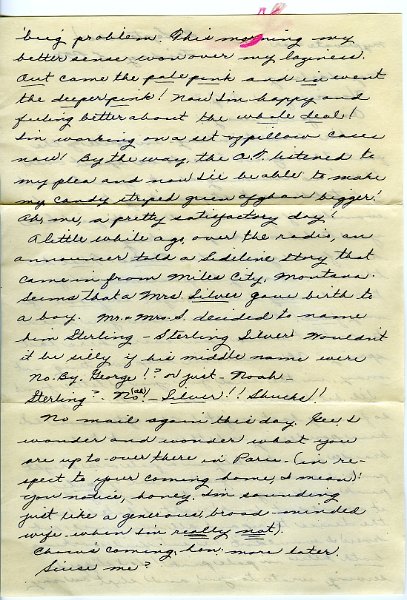 big problem. This morning my
better sense won over my laziness.
Out came the pale pink and in went
the deeper pink! Now I'm happy and
feeling better about the whole deal!
I'm working on a set of pillow cases
now! By the way, the listened to
my plea and now I'll be able to make
my candy striped green afghan bigger!
Ah me, a pretty satisfactory day!
A little while ago, over the radio, an
announcer told a sideline story that
came in from Miles City, Montana.
Seems that a Mrs. Silver gave birth to
a boy. Mr. & Mrs. S. decided to name
him Sterling - Sterling Silver! Wouldn't
it be silly if his middle name were
No. By. George!? or just - Noah -
Sterling? - No(ah)! - Silver!! Shucks!!
No mail again this day. Gee, I
wonder and wonder what you
are up to over there in Paris - (in re-
spect to your coming home, I mean)!
You notice, honey. I'm sounding
just like a generous, broad-minded
wife when I'm really not).
Chow's coming, hon. more later.
'Scuse me?